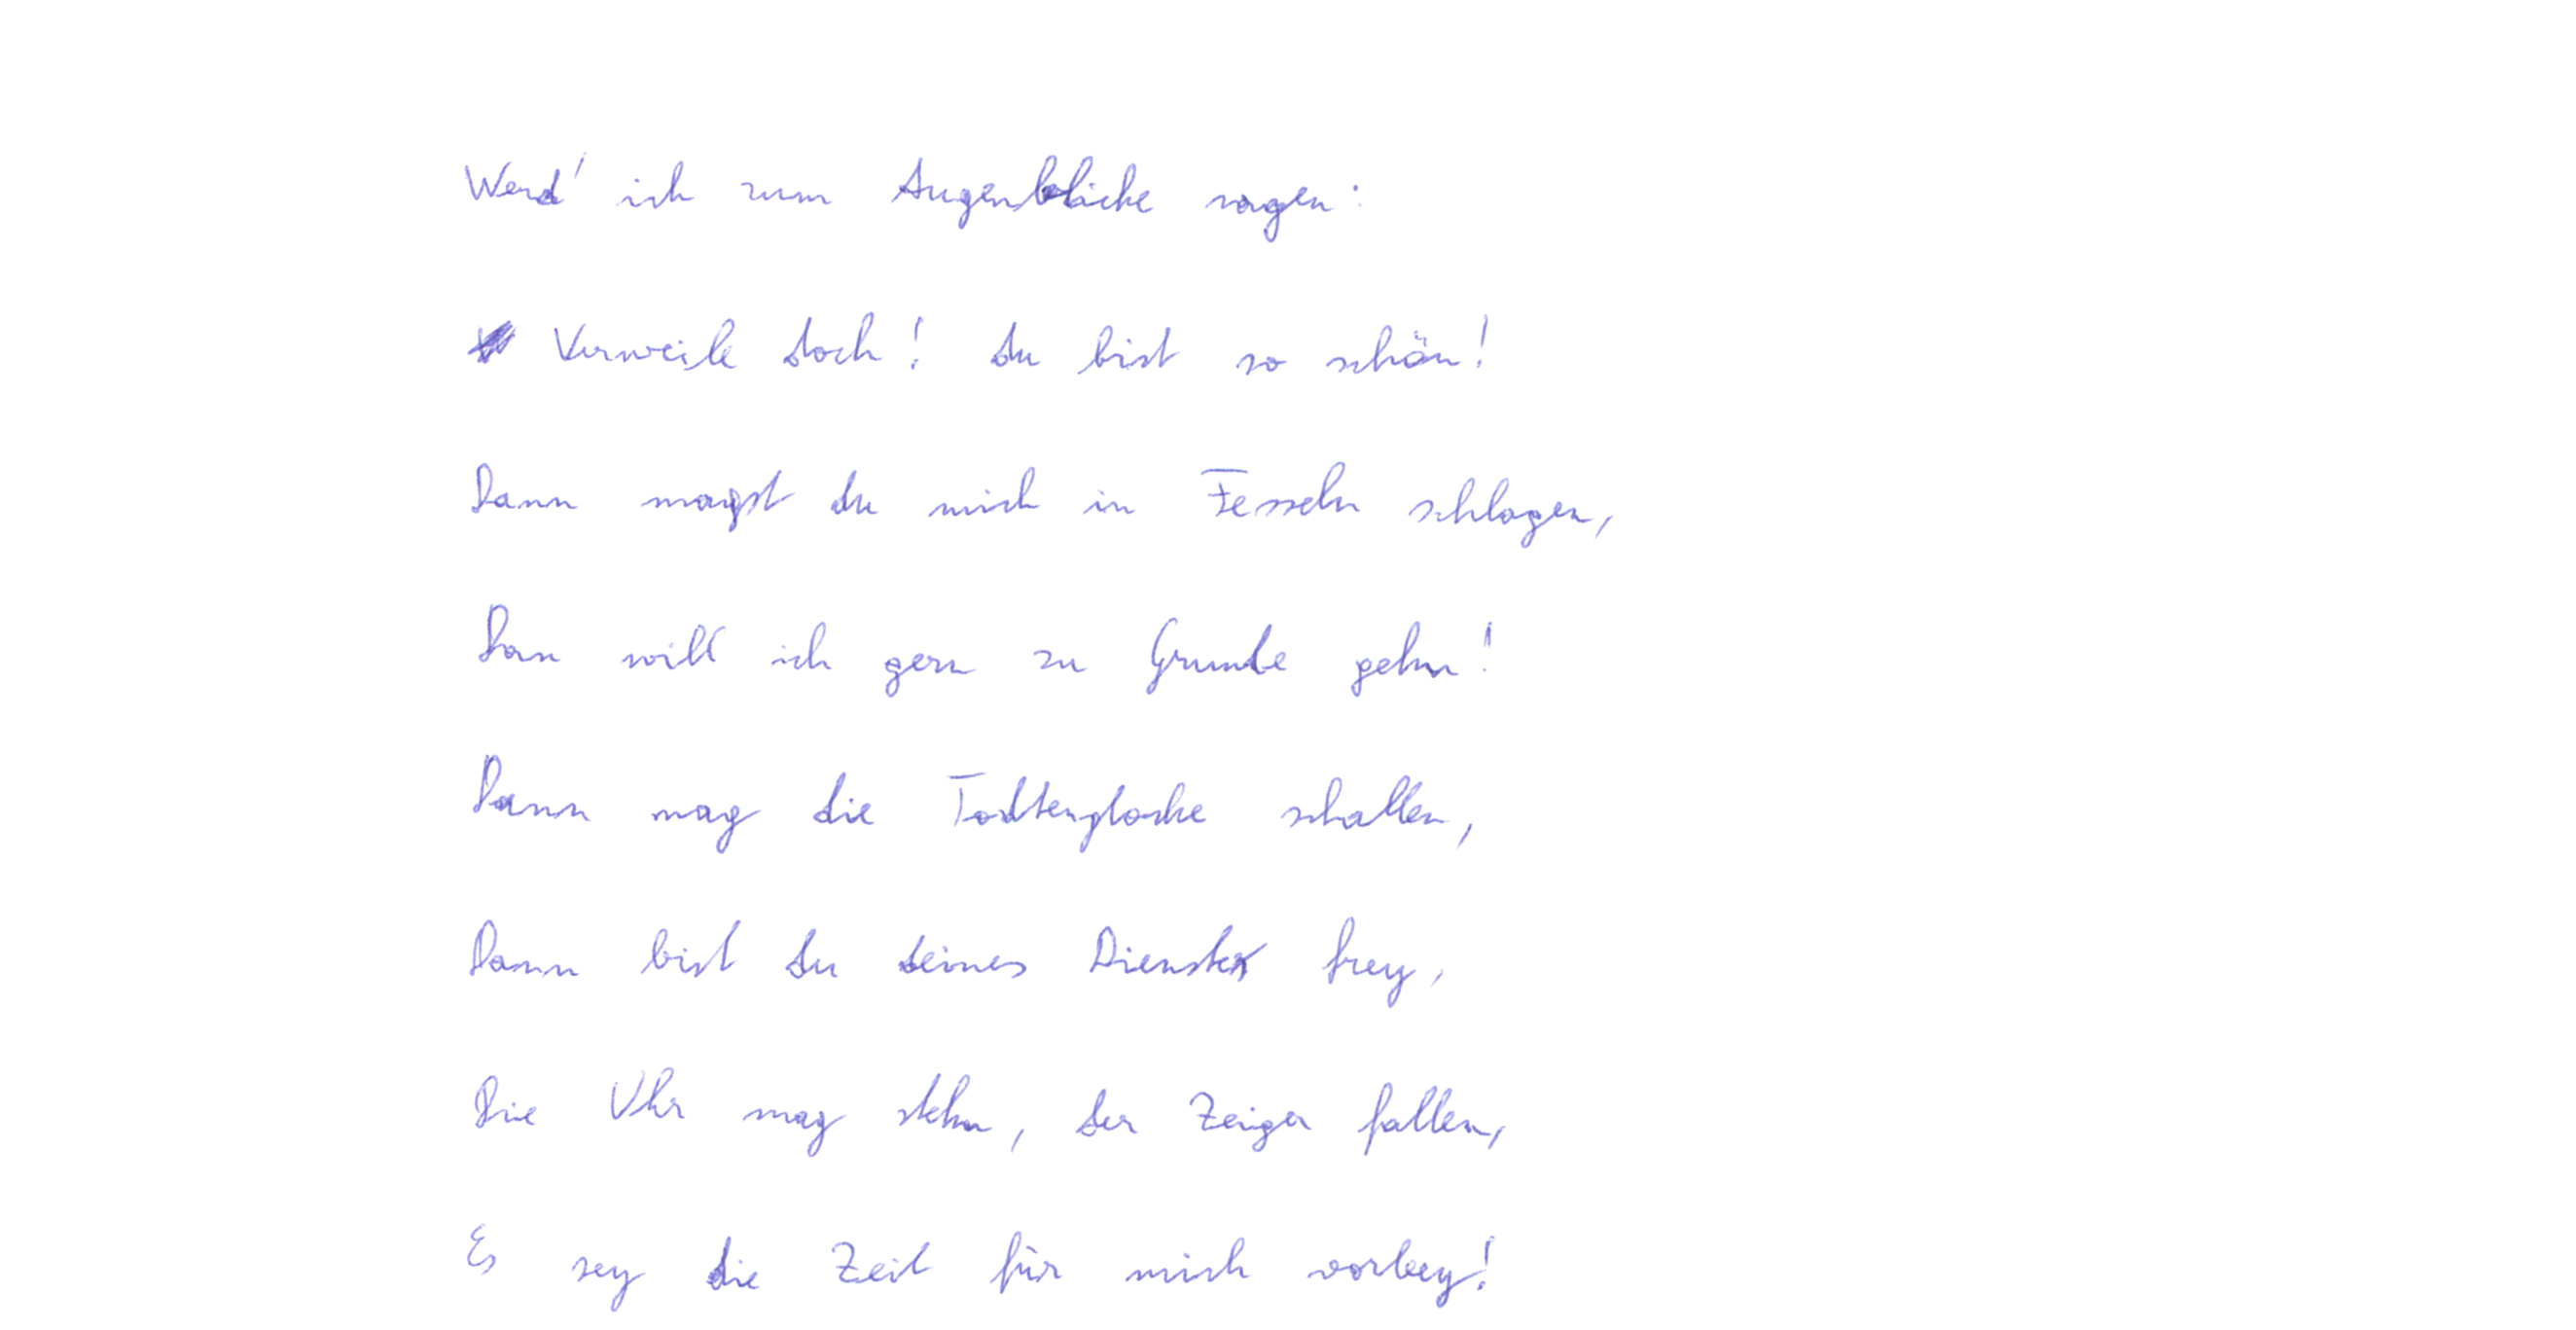 Werd' ich zum Augenblicke sagen:
Verweile doch! du bist so schön!
Dann magst du mich in Fesseln schlagen,
Dan will ich gern zu Grunde gehn!
Dann mag die Todtenglocke schallen,
Dann bist du deines Dienstes frey,
Die Uhr mag stehn, der Zeiger fallen,
Es sey die Zeit für mich vorbey!